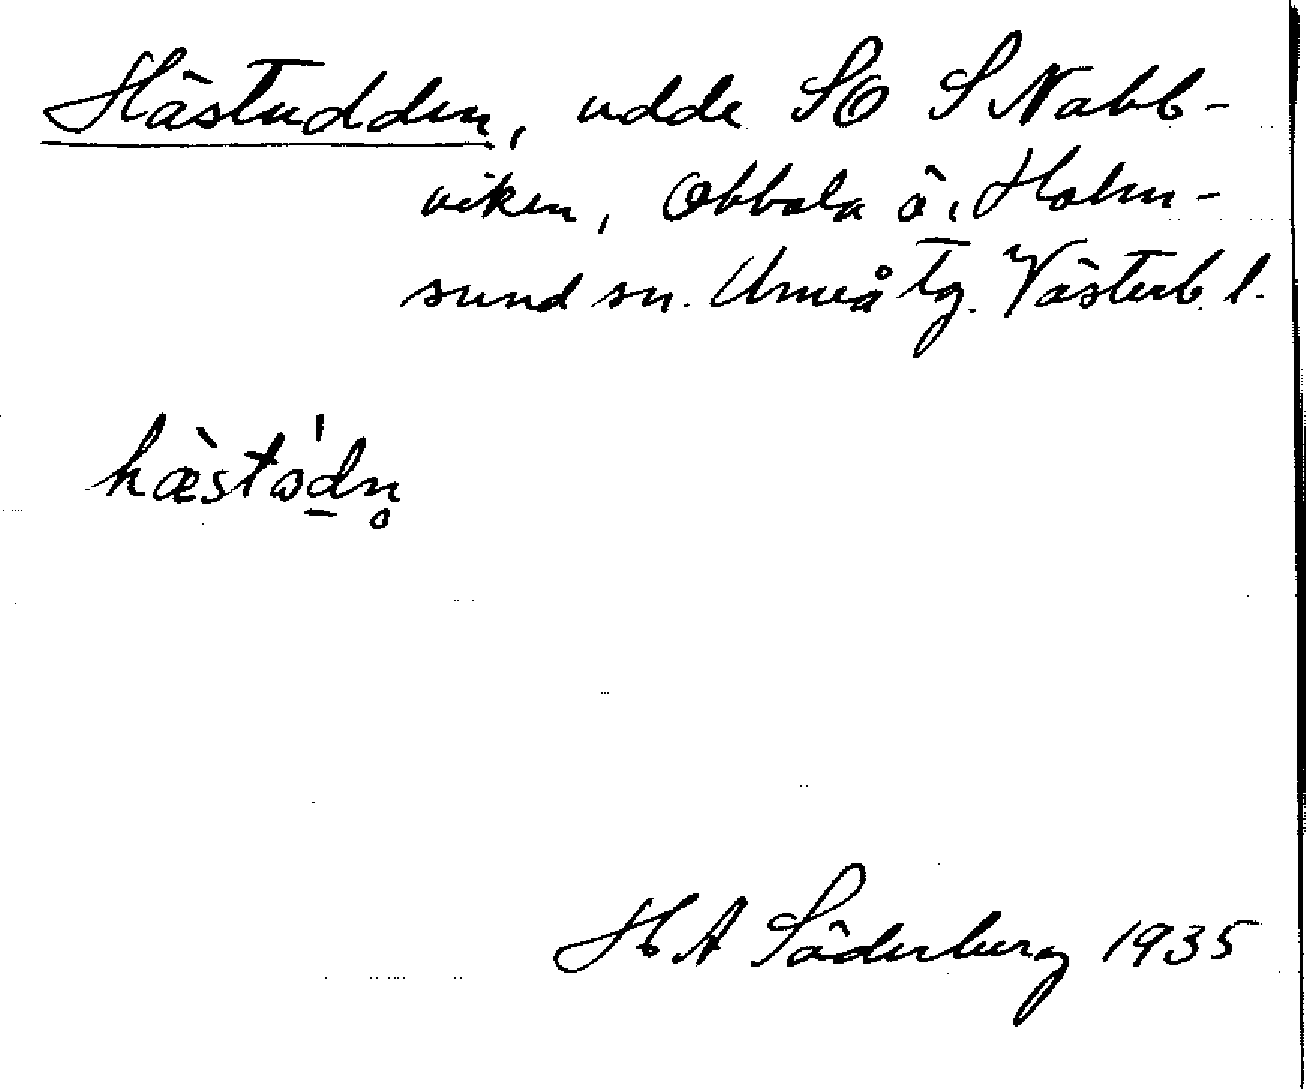 Hästudden, udde SO S Nabb-
viken, Obbola ö, Holm-
sund sn. Umeå tg. Västerb. l.
hæ̀stɷd̠n̥
H A Söderberg 1935